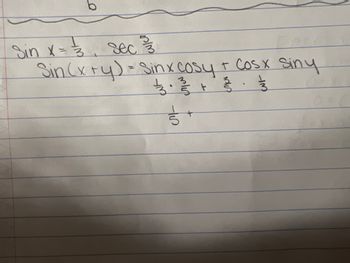 b
Sin x = 1/3 . Sec 5/3
Sin(x+y) = Sinx cosy + Cosx Siny
1/3 · 3/5 + 3/5 · 1/3
1/5 +